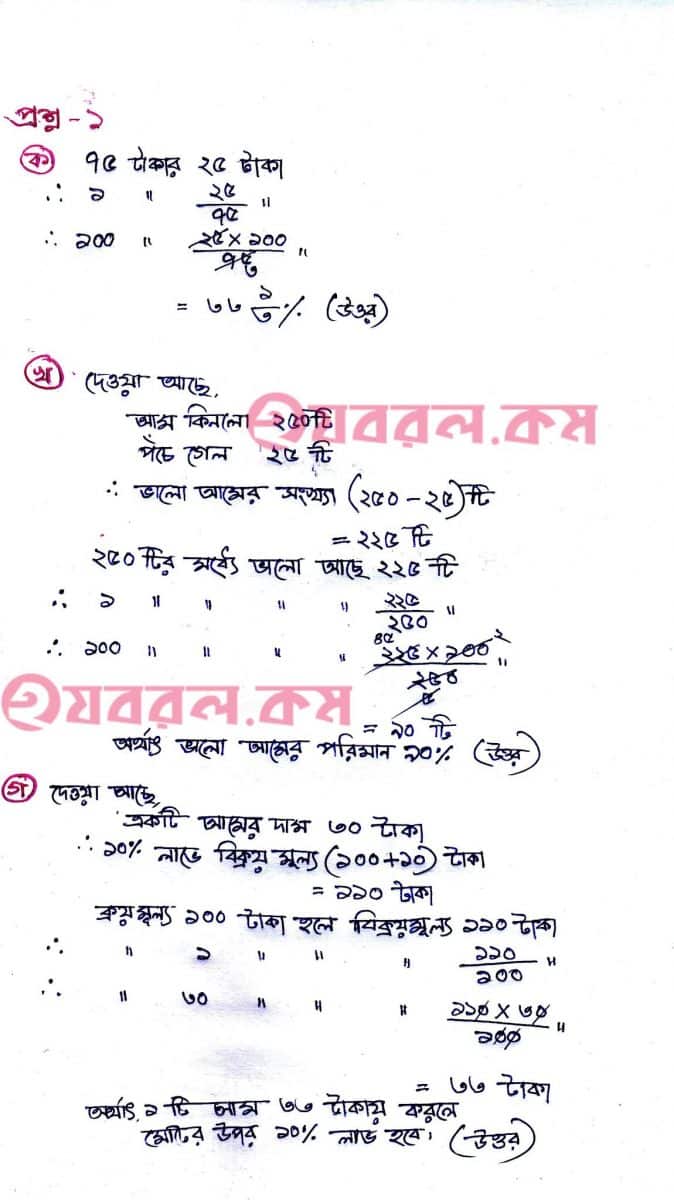 প্রশ্ন - ১
ক) ৭৫ টাকার ২৫ টাকা
∴ ১ " ২৫/৭৫ "
∴ ১০০ " ২৫ × ১০০/৭৫ ৩ "
= ৩৩ ১/৩ % (উত্তর)
খ) দেওয়া আছে,
আম কিনলো ২৫০টি
পঁচে গেল ২৫ টি
∴ ভালো আমের সংখ্যা (২৫০ - ২৫) টি
= ২২৫ টি
২৫০ টির মধ্যে ভালো আছে ২২৫ টি
∴ ১ " " " " ২২৫/২৫০ "
∴ ১০০ " " " " ৪৫ ২২৫ × ১০০ ২/২৫০ ৫ "
= ৯০ টি
অর্থাৎ ভালো আমের পরিমান ৯০% (উত্তর)
গ) দেওয়া আছে,
একটি আমের দাম ৩০ টাকা
∴ ১০% লাভে বিক্রয় মূল্য (১০০+১০) টাকা
= ১১০ টাকা
ক্রয়মূল্য ১০০ টাকা হলে বিক্রয়মূল্য ১১০ টাকা
∴ " ১ " " " ১১০/১০০ "
∴ " ৩০ " " " ১১০ × ৩০/১০০ "
= ৩৩ টাকা
অর্থাৎ, ১ টি আম ৩৩ টাকায় করলে
মোটের উপর ১০% লাভ হবে। (উত্তর)
হযবরল.কম
হযবরল.কম